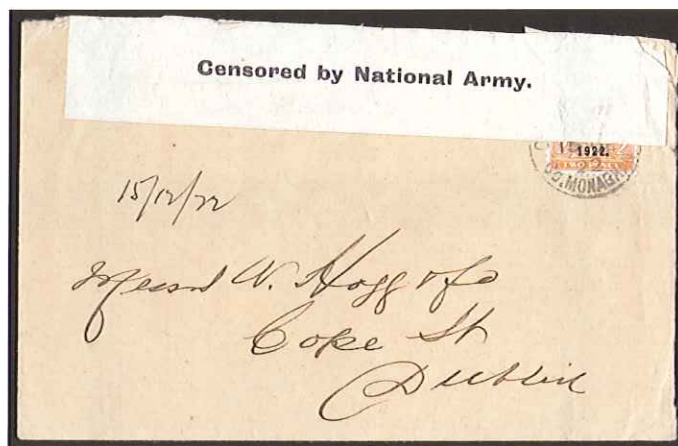 Censored by National Army.
1922.
TWO PENCE
CO. MONAGHAN
15/12/22
Messrs W. Hogg & Co
Cope St
Dublin